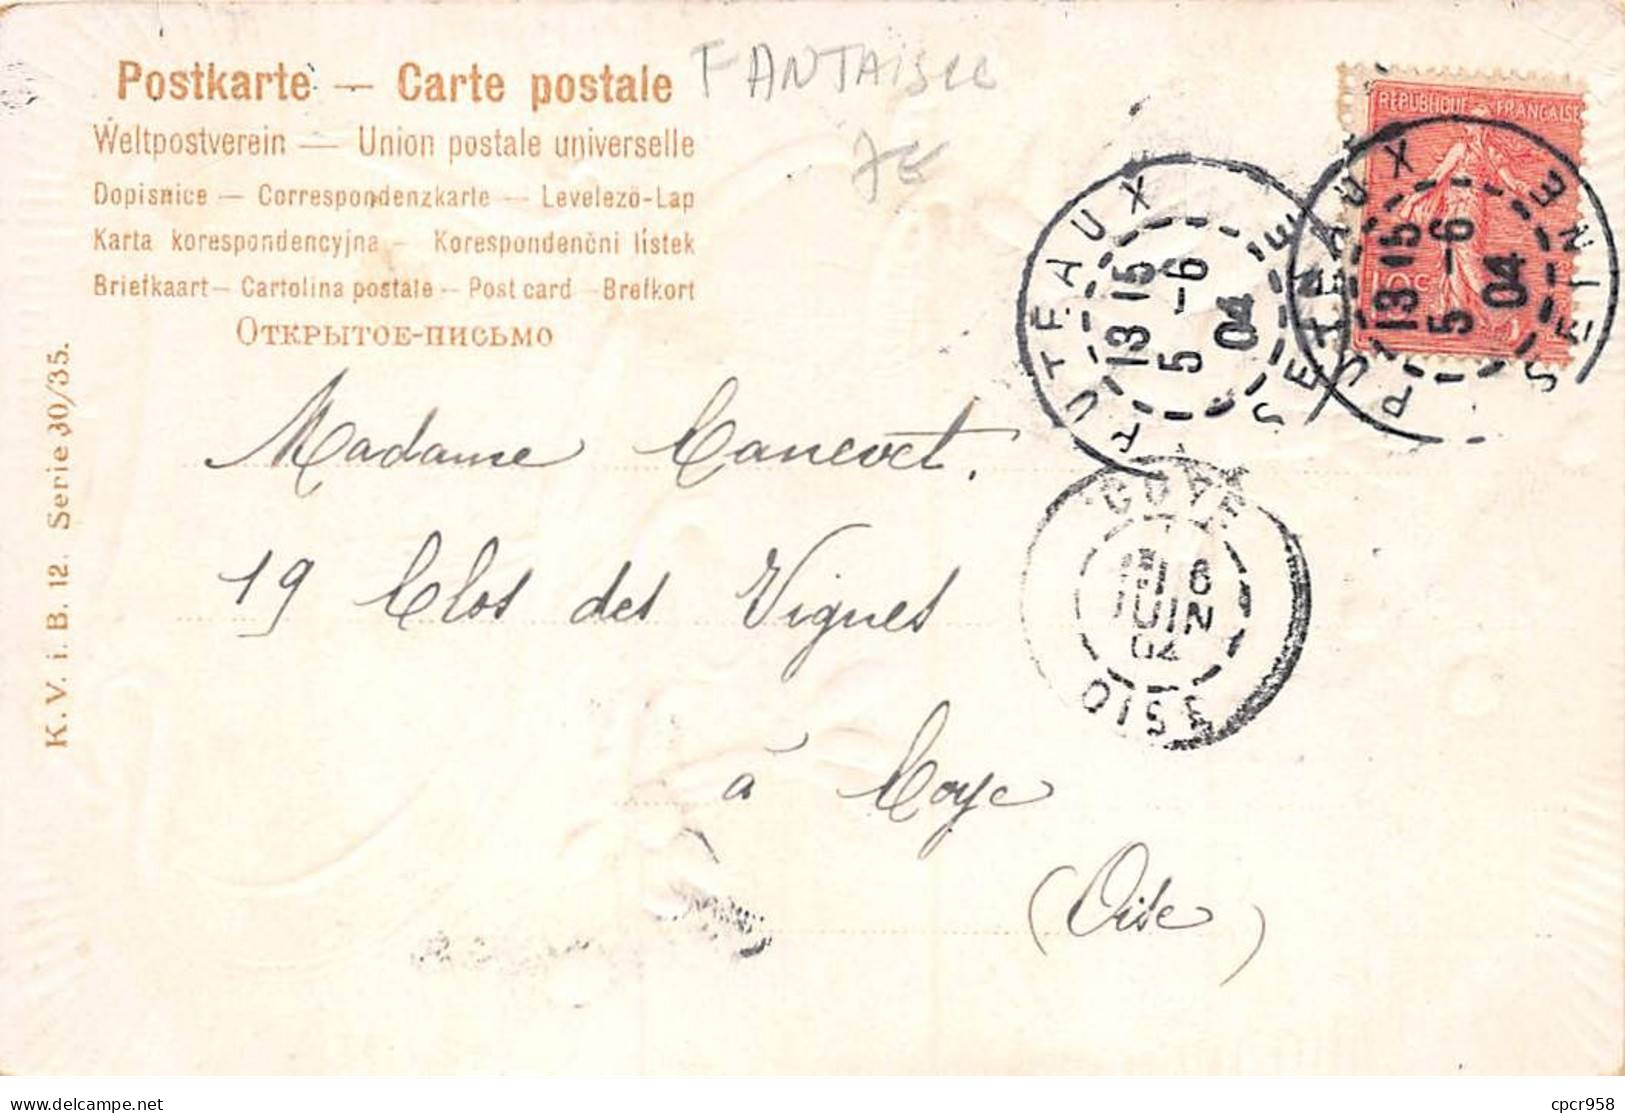 Postkarte — Carte postale
FANTAISIE
Weltpostverein — Union postale universelle
7€
Dopisnice — Correspondenzkarte — Levelező-Lap
Karta korespondencyjna — Korespondenčni lístek
Briefkaart — Cartolina postale — Post card — Brefkort
Открытое-письмо
K. V. i. B. 12. Serie 30/35.
REPUBLIQUE FRANÇAISE
10c
PUTEAUX
13 15
5 -6
04
SEINE
PUTEAUX
13 15
5 -6
04
SEINE
Madame Canevet.
19 Clos des Vignes
à Coye
(Oise)
COYE
6
JUIN
04
OISE
www.delcampe.net
cpcr958